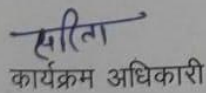 सरिता
कार्यक्रम अधिकारी